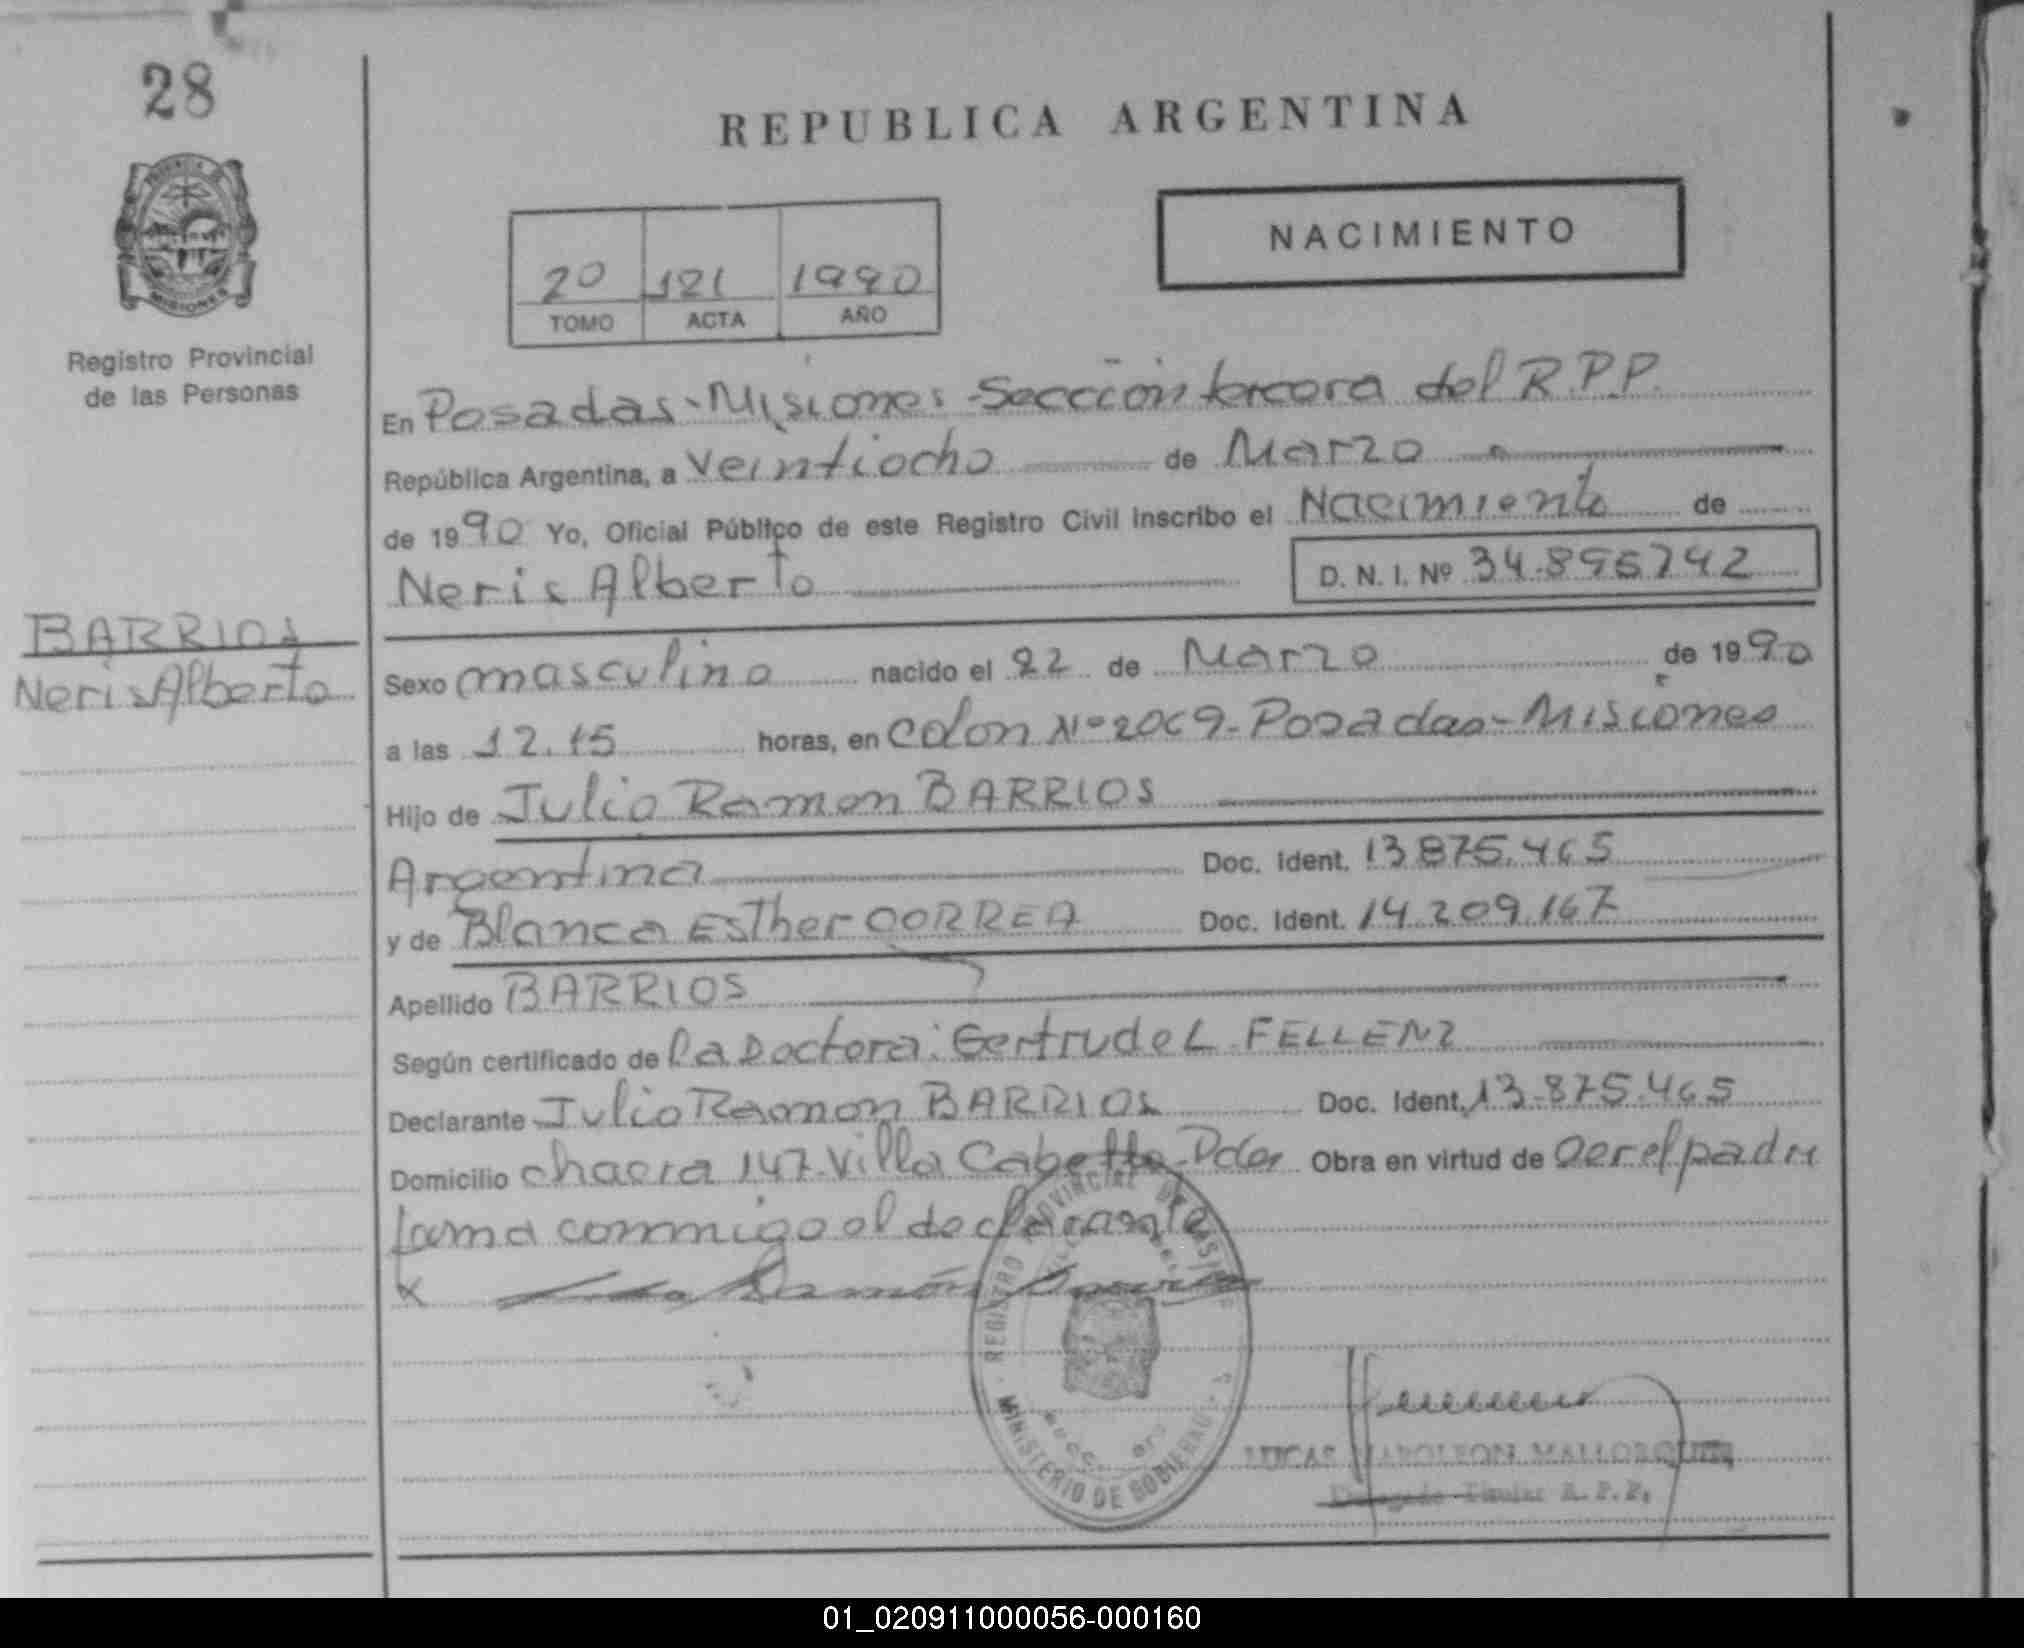 28
REPUBLICA ARGENTINA
NACIMIENTO
2º 121 1990
TOMO ACTA AÑO
PROVINCIA DE
MISIONES
Registro Provincial
de las Personas
En Posadas-Misiones-Seccion tercera del R.P.P.
República Argentina, a Veintiocho de Marzo
de 1990 Yo, Oficial Público de este Registro Civil inscribo el Nacimiento de
Neris Alberto D. N. I. Nº 34.895742
BARRIOS
Neris Alberto
Sexo masculino nacido el 22 de Marzo de 1990
a las 12.15 horas, en Colon Nº 2069-Posadas-Misiones
Hijo de Julio Ramon BARRIOS
Argentina Doc. Ident. 13875.465
y de Blanca Esther CORREA Doc. Ident. 14.209.167
Apellido BARRIOS
Según certificado de la Doctora: Gertrude L FELLENZ
Declarante Julio Ramon BARRIOS Doc. Ident. 13.875.465
Domicilio chacra 147 Villa Cabello Obra en virtud de ser el padre
conmigo el declarante
X Ramón
REGISTRO PROVINCIAL DE LAS
MINISTERIO DE GOBIERNO
LUCAS NAPOLEON MALLORQUIN
Delegado Titular R.P.P.
01_020911000056-000160